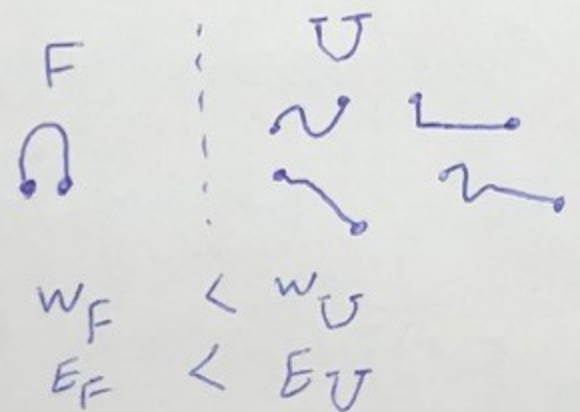 F U
W_F < W_U
E_F < E_U